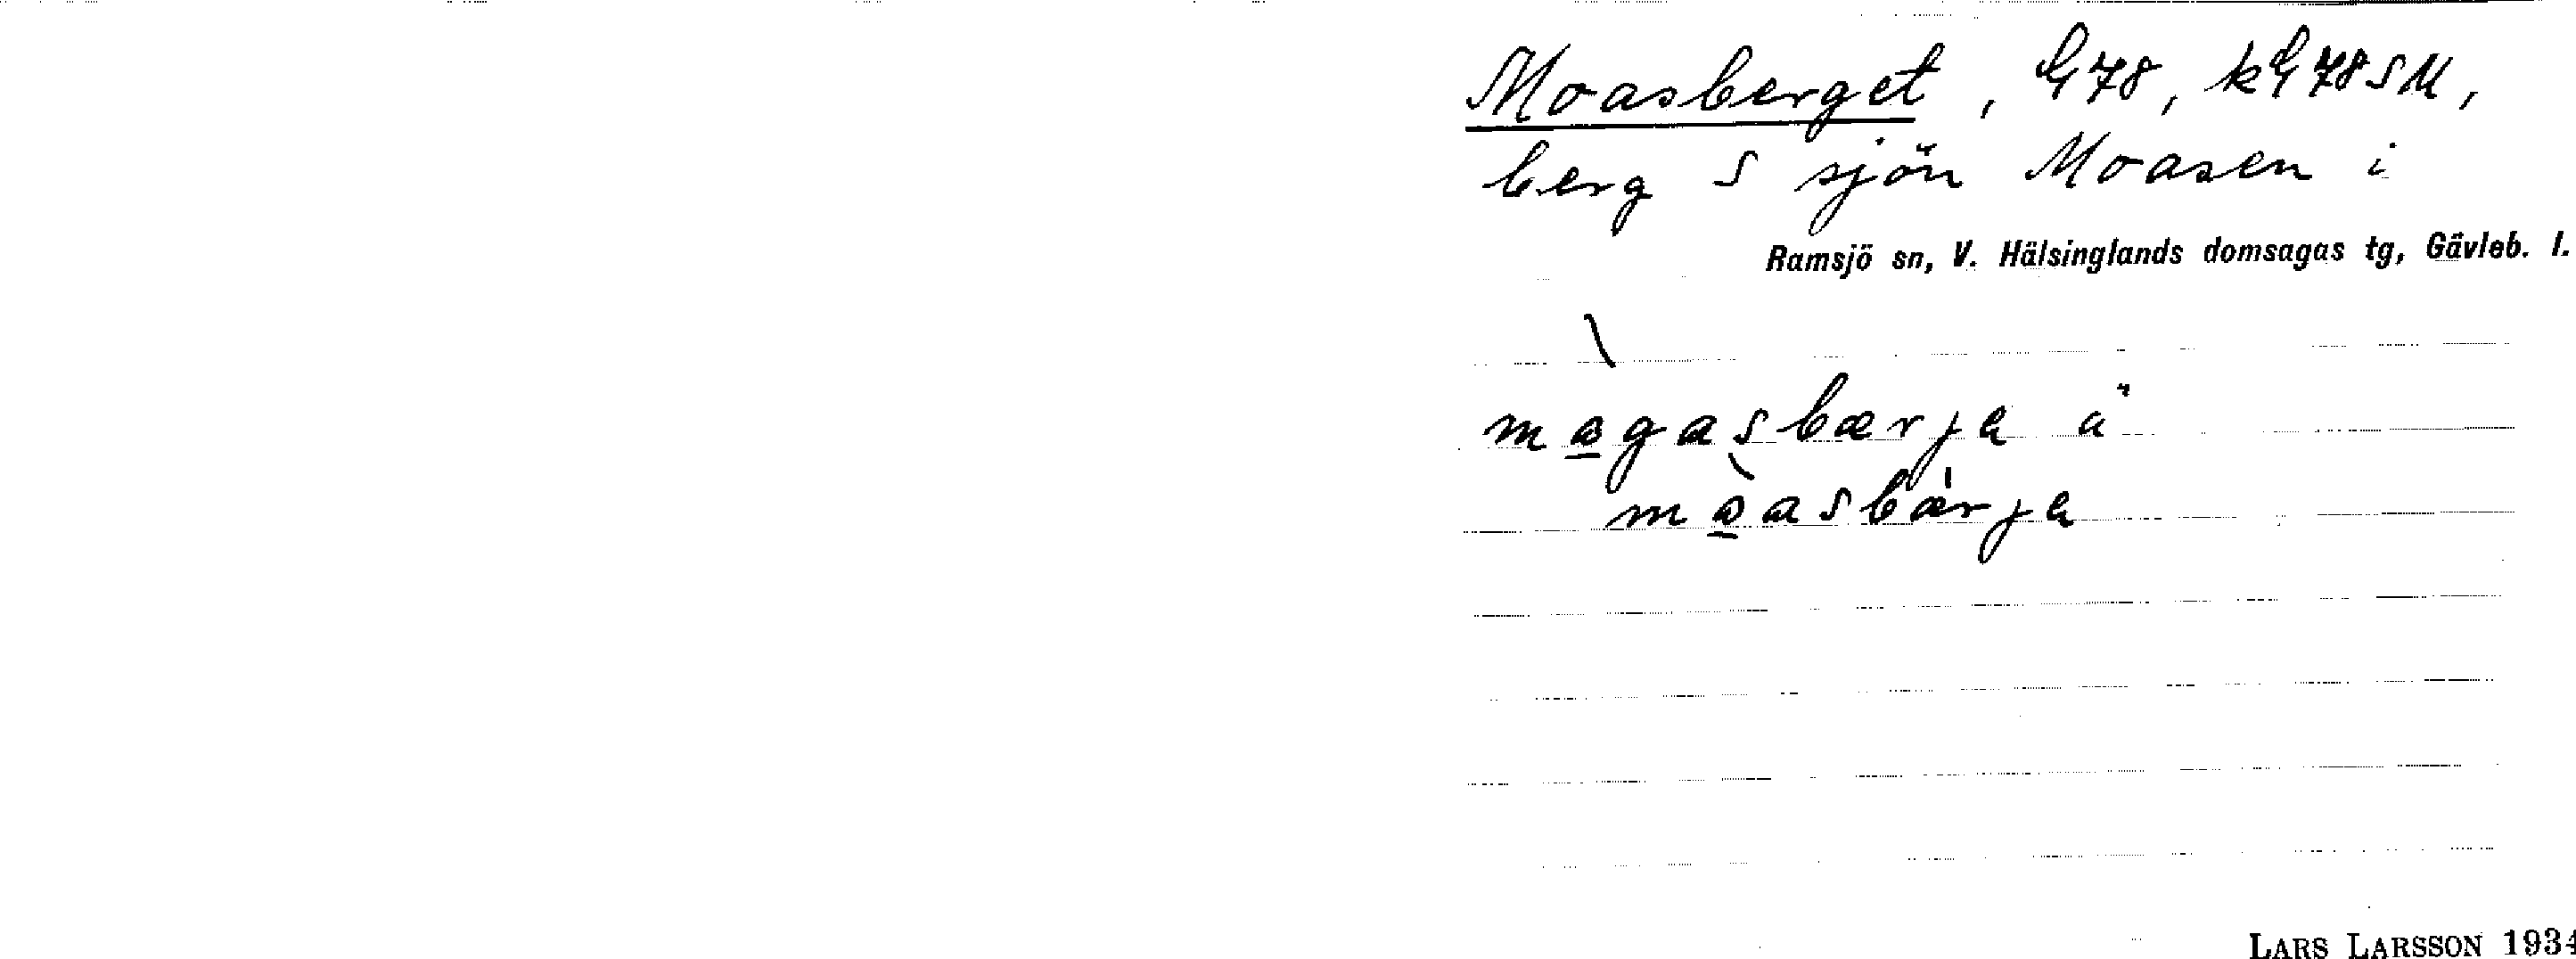 Moasberget, G78, kG78SM,
berg S sjön Moasen i
Ramsjö sn, V. Hälsinglands domsagas tg, Gävleb. l.
LARS LARSSON 1934